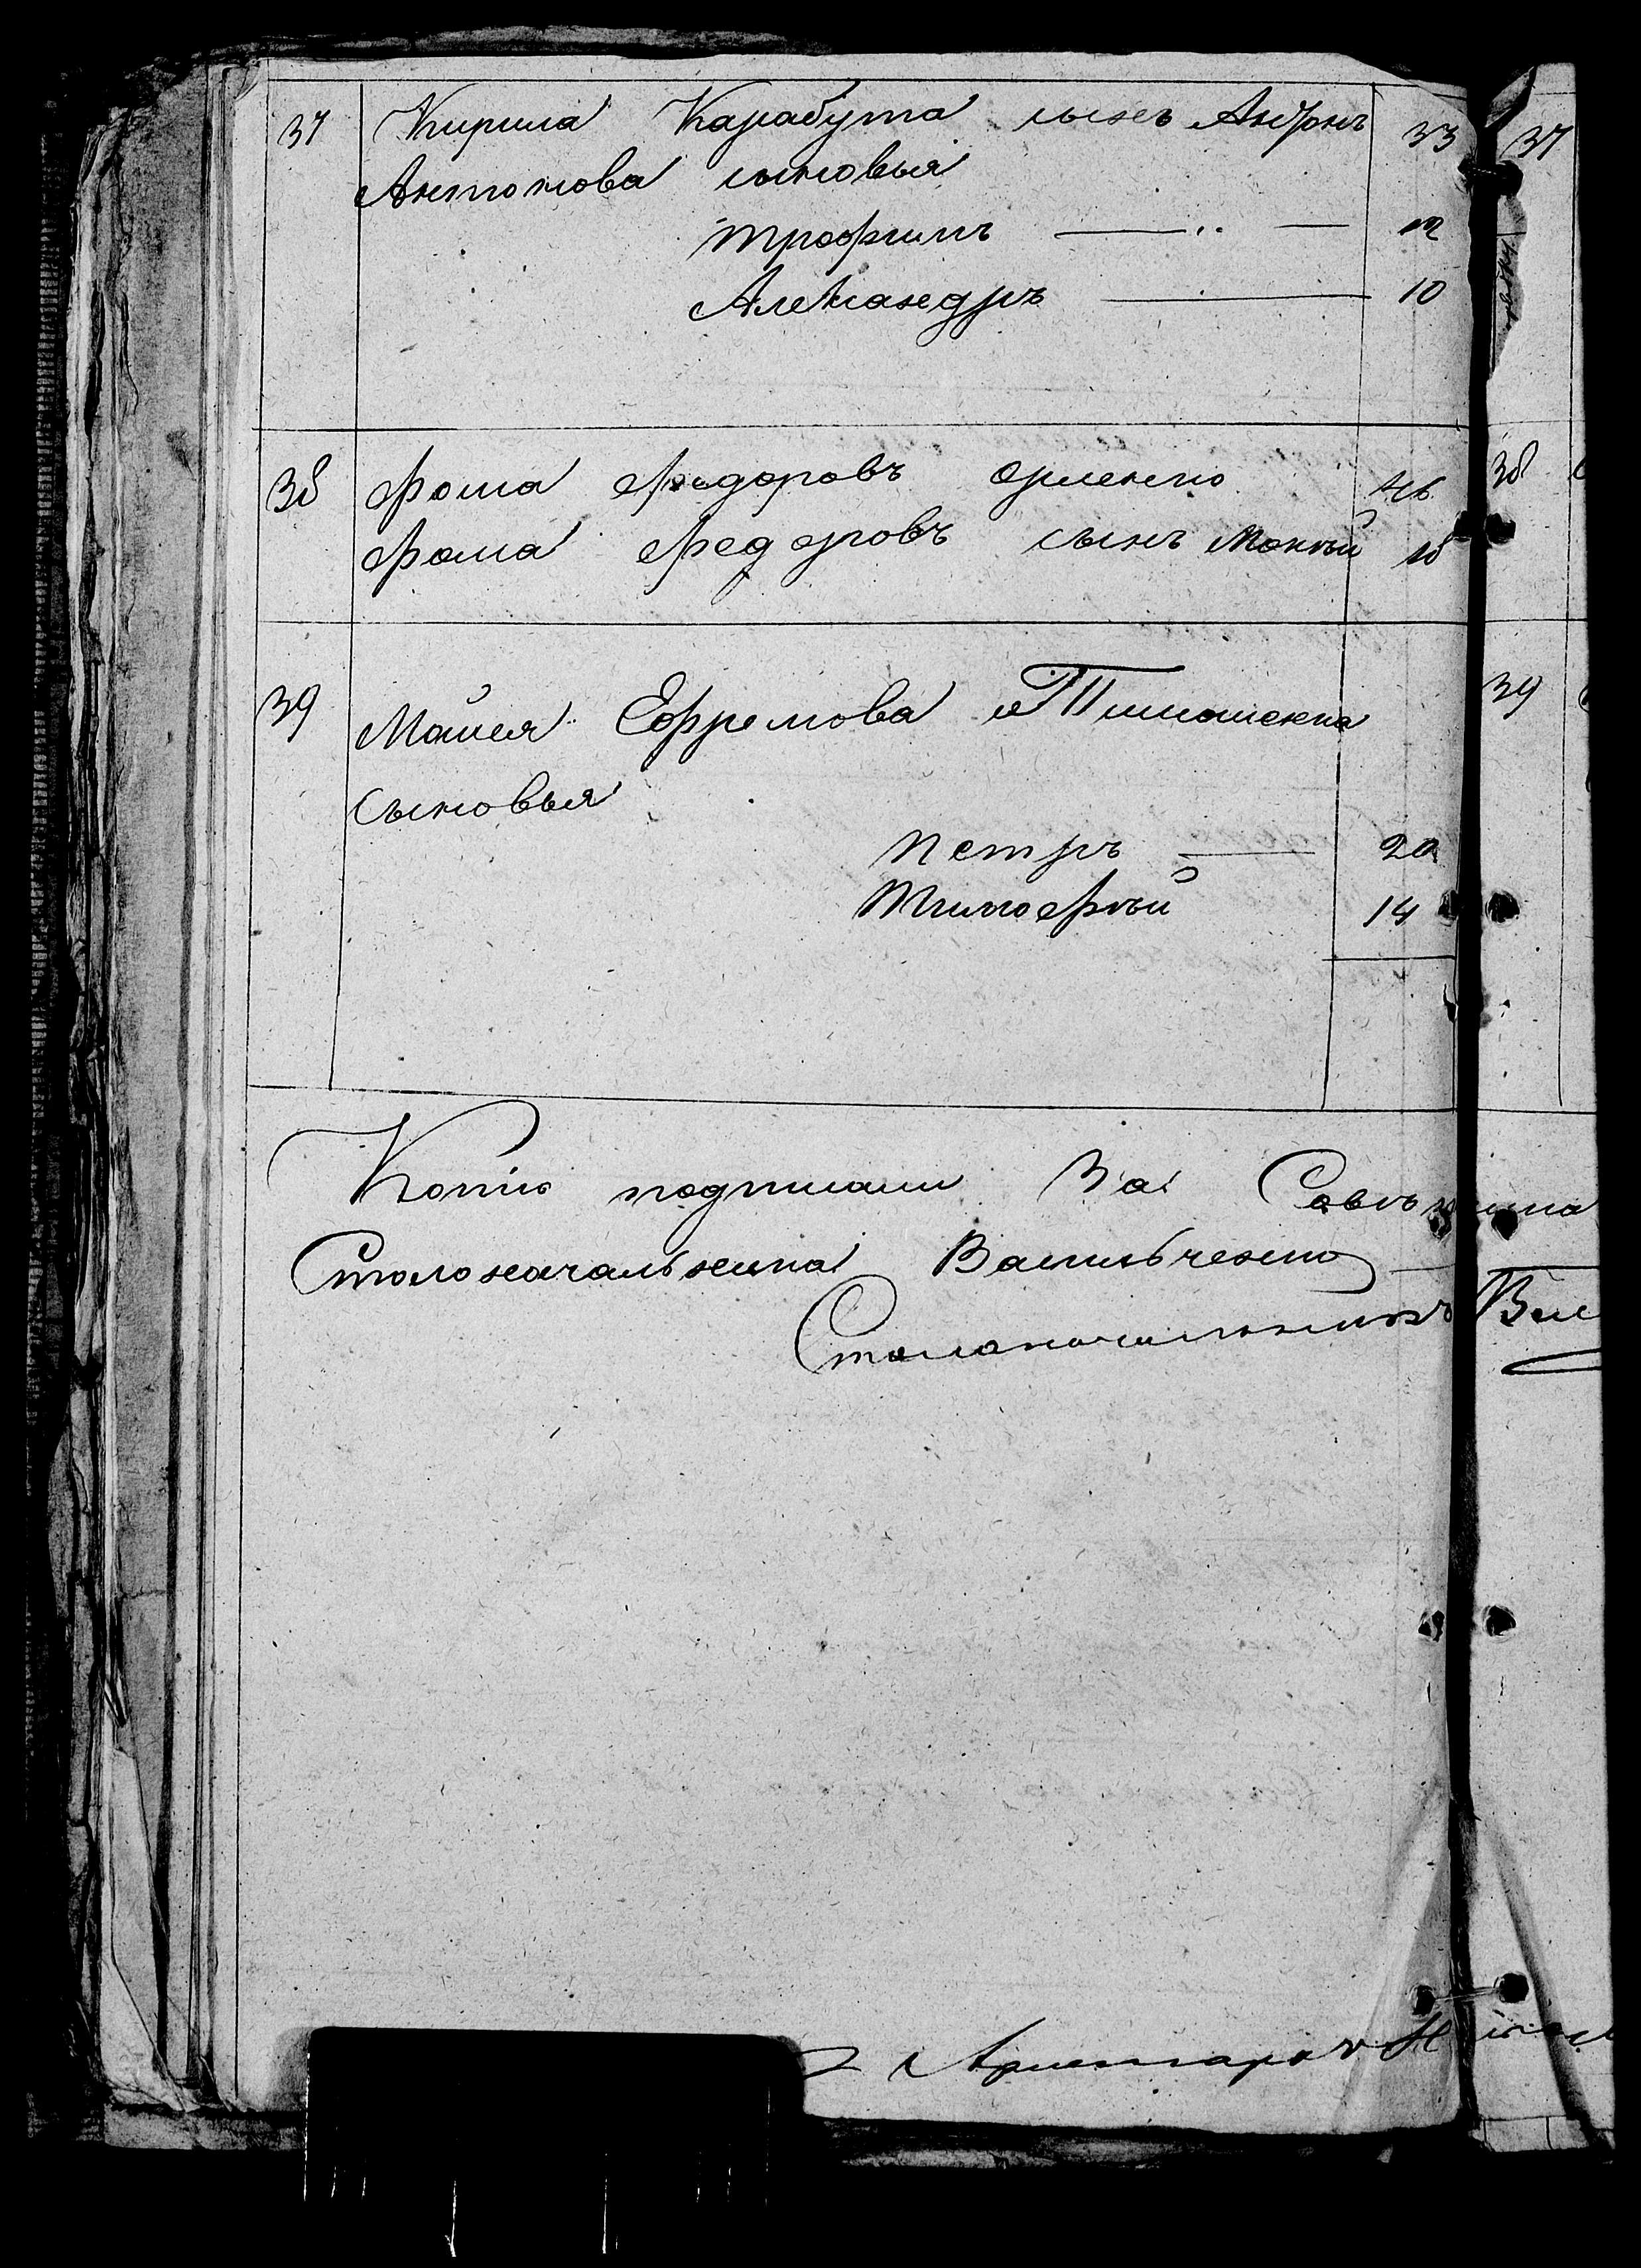 37 Кирила Карабута сынъ Андрей 33 37
Антонова сыновья
Трофимъ 12
Александръ 10
38 Фома Федоровъ Орленко 46 38
Фома Федоровъ сынъ Мокѣй 18
39 Мойсея Ефремова Тимошенка 39
Сыновья
Петръ 20
Тимофѣй 14
Копію подписали За Совѣтника
Столоначальника Васильченко
Столоначальникъ